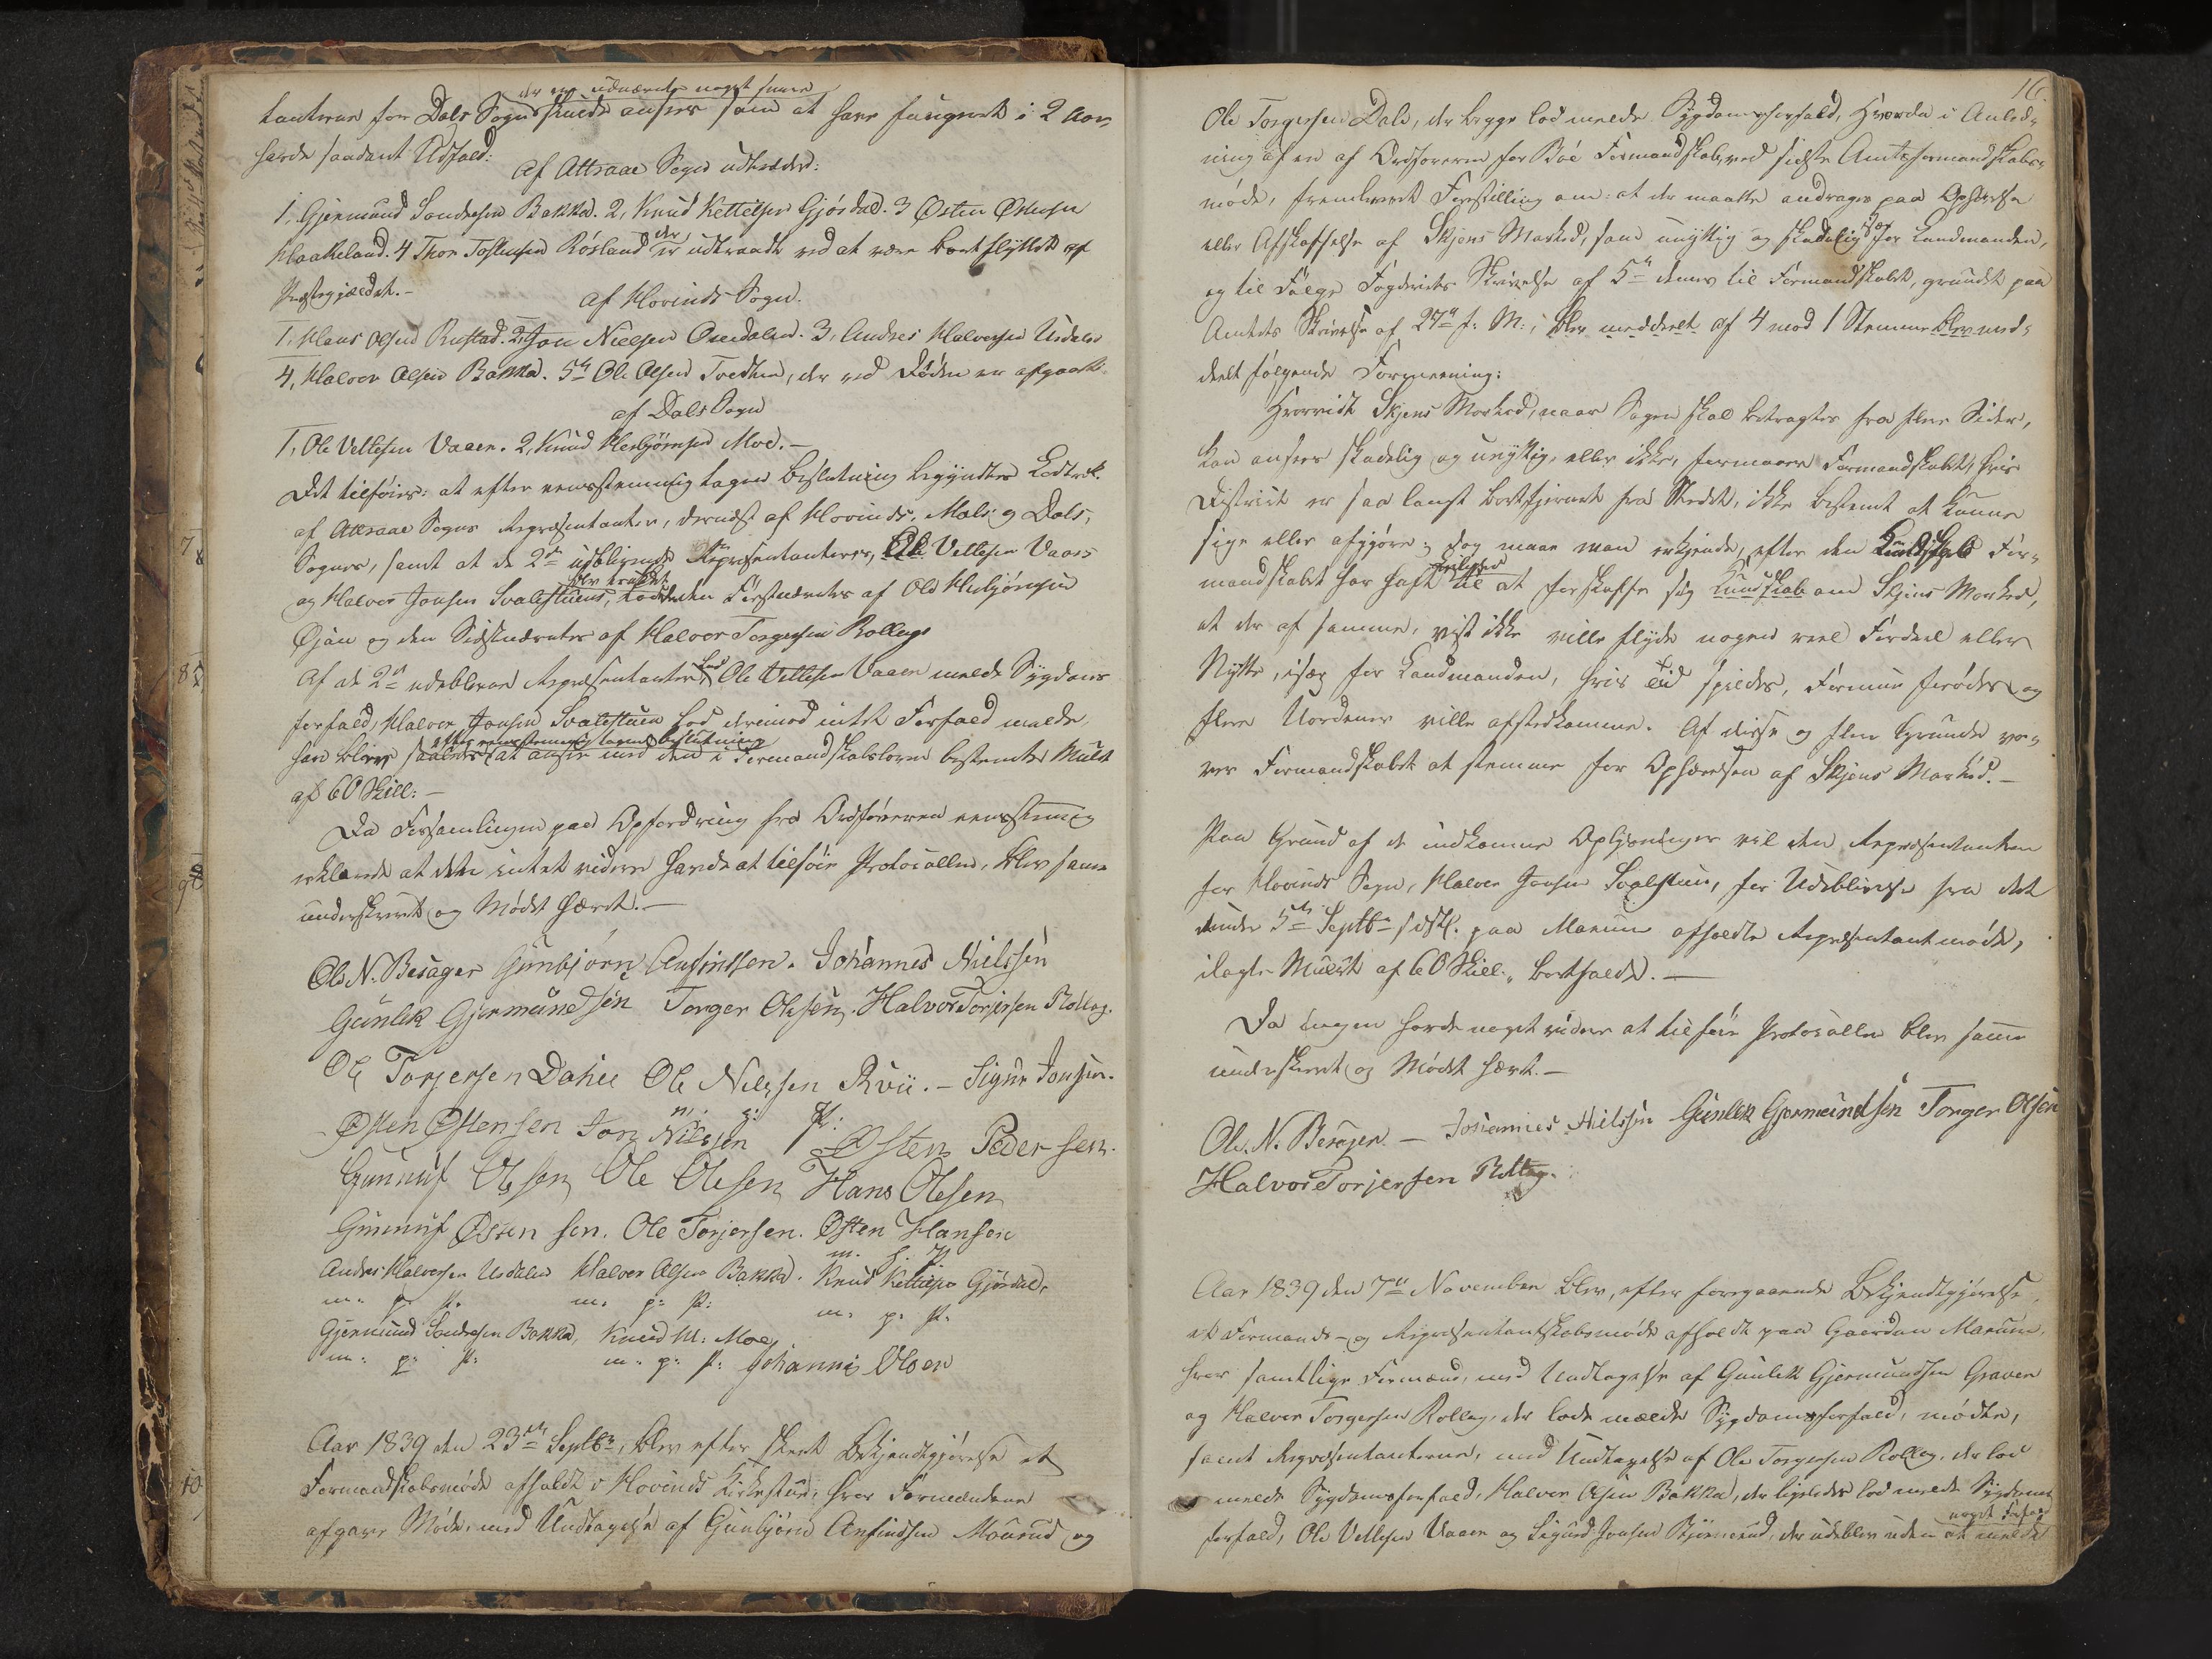 der er udnævnte noget senere
tanterne for Dals Sogn skulde ansees som at have fungeret i 2 Aar,
havde saadant Udfald:
Af Attraae Sogn udtræder:
1, Gjermund Sondresen Bakka. 2, Knud Kettilsen Gjøsdal. 3 Østen Østensen
Haakeland. 4 Thor Tostensen Røsland der er udtraadt ved at være bortflyttet af
Præstegjældet.-
af Hovinds Sogn.
1, Hans Olsen Rustad. 2, Jon Nielsen 3, Andres Halvorsen Usdalen
4, Halvor Olsen Bakka. 5te Ole Olsen Tvedten, der ved Døden er afgaaet.
af Dals Sogn
1, Ole Vetlesen Vaaer. 2, Knud Herbjørnsen Moe.-
Det tilføies: at efter eenstemmig tagen Beslutning begyndtes Lodtræk.
af Attraae Sogns Repræsentanter, dernæst af Hovinds, Mæls og Dals,
Sogner, samt at de 2de udeblivende Repræsentanterer, Ole Vetlesen Vaaer
blev trukket
og Halvor Jonsen Svalestuens, den Førstnævntes af Ole Herbjørnsen
Øján og den Sidstnævntes af Halvor Torgersen Rollag.
Af de 2de udeblevne Repræsentanter lod Ole Vetlesen Vaaer melde Sygdoms
forfald, Halvor Jonsen Svalestuen lod derimod intet Forfald melde,
efter eenstemmig tagen beslutning
han bliver saaledes at ansee med den i Formandskabsloven bestemte Mulct
af 60 Skill:-
Da Forsamlingen paa Opfordring fra Ordføreren eenstemmig
erklærede at den intet videre havde at tilføie Protocollen, blev samme
underskrevet og Mødet hævet.-
Ole N. Besager Gunbjörn Anfindsen. Johannes Nielssen
Gunlek Gjermundsen Torger Olesen, Halvor Torjersen Rollag.
Ole Torjersen Dahle Ole Nielssen Rvii.- Sigur Jonsen.
Østen Østensen Jon Nilssen Østen Pedersen.
m. p: P:
Gunnuf Olesen Ole Olesen Hans Olesen
Gunnuf Østensen. Ole Torjersen. Østen Hansen
m. p. P.
Andres Halvorsen Usdalen Halvor Olsen Bakka. Knud Kettilsen Gjøsdal,
m. p. P. m. p: P: m. p. P.
Gjermund Sondresen Bakka, Knud H: Moe,
m: p: P: m. p: P: Johannis Olsen
Aar 1839 den 23de Septbr, blev efter skeet Bekjendtgjørelse et
Formandskabsmøde afholdt i Hovinds Kirkestue, hvor Formændene
afgave Møde, med Undtagelse af Gunbjörn Anfindsen Maurud og
16.
Ole Torgersen Dale, der begge lod melde Sygdomsforfald. Hvorda i Anled-
ning af en af Ordføreren for Bøe Formandskab, ved sidste Amtsformandskabs-
møde, fremkomet Forestilling om: at der maatte andrages paa Ophævelse
eller Afskaffelse af Skjens Marked, som unyttig og skadelig især for Landmanden,
og til Følge Fogderiets Skrivelse af 5te dennes til Formandskabet, grundet paa
Amtets Skrivelse af 27de f: M:, blev meddeelt af 4 mod 1 Stemme blev med-
deelt følgende Formeening:
Hvorvidt Skjens Marked, naar Sagen skal betragtes fra flere Sider,
kan ansees skadelig og unyttig, eller ikke, formaaer Formandskabet, hvis
District er saa langt bortfjernet fra Stedet, ikke bestemt at kunne
sige eller afgjøre; dog maae man erkjende, efter den Kundskab For-
mandskabet har haft Leilighed til at forskaffe sig Kundskab om Skjens Marked,
at der af samme, vist ikke ville flyde nogen reel Fordeel eller
Nytte, især for Landmanden, hvis Tid spildes, Formue forødes og
flere Uordener ville afstedkomme. Af disse og flere Grunde vo-
ver Formandskabet at stemme for Ophævelsen af Skjens Marked.-
Paa Grund af de indkomne Oplysninger vil den Repræsentanten
for Hovinds Sogn, Halvor Jonsen Svalestuen, for Udeblivelse fra det
under 5te Septbr sidstl. paa Marum afholdte Repræsentantmøde,
ilagte Mulct af 60 Skill:, bortfalde.-
Da ingen havde noget videre at tilføie Protocollen blev samme
underskrevet og Mødet hævet.-
Ole. N. Besager.- Johannes Nielssen Gunlek Gjermundsen Torger Olsen
Halvor Torjersen Rollag.
Aar 1839 den 7de November blev, efter foregaaende Bekjendtgjørelse,
et Formands- og Repræsentantskabsmøde afholdt paa Gaarden Marum,
hvor samtlige Formænd, med Undtagelse af Gunlek Gjermundsen Graver
og Halvor Torgersen Rollag, der lode melde Sygdomsforfald, mødte,
samt Repræsentanterne, med Undtagelse af Ole Torgersen Rollag, der lod
melde Sygdomsforfald, Halvor Olsen Bakka, der ligeledes lod melde Sygdoms
forfald, Ole Vetlesen Vaaer og Sigurd Jonsen Bjørnerud, der udeblev uden at melde
noget Forfald